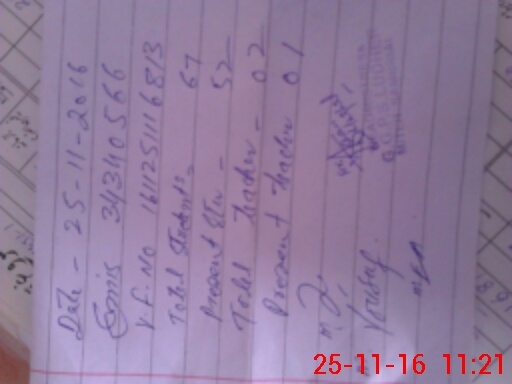 Date - 25-11-2016
Emis 34340566
V.F. No 1611251116813
Total Students - 67
Present Stu - 52
Total Teacher - 02
Present Teacher 01
Yousaf
25-11-16 11:21